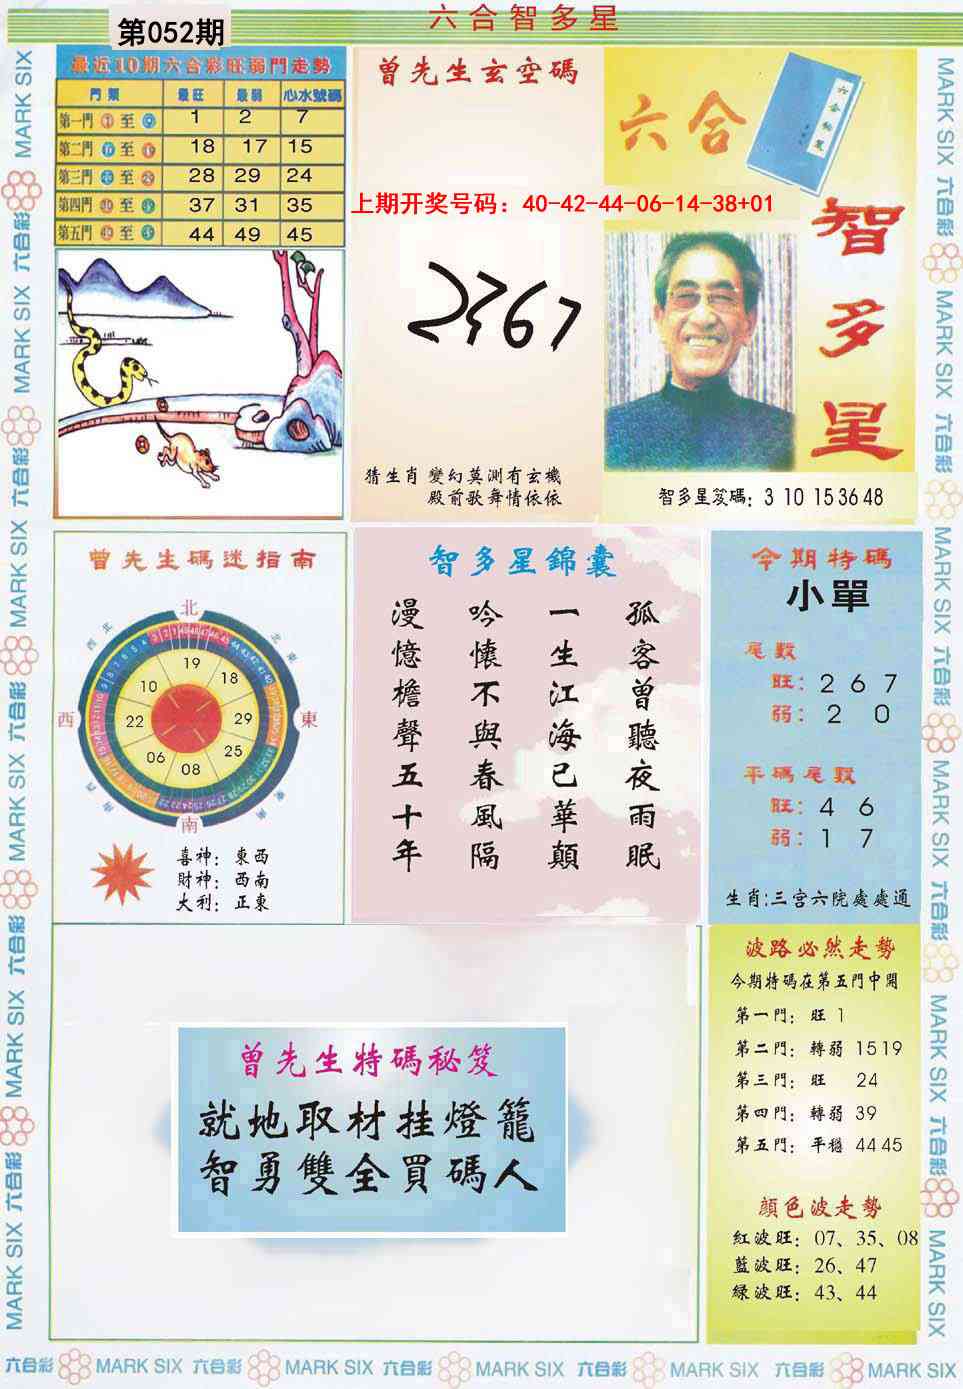 六合智多星
第052期
最近10期六合彩旺弱門走勢
門類 最旺 最弱 心水號碼
第一門 ① 至 ⑨ 1 2 7
第二門 至 18 17 15
第三門 至 28 29 24
第四門 至 37 31 35
第五門 至 44 49 45
曾先生玄空碼
上期开奖号码：40-42-44-06-14-38+01
2367
猜生肖 變幻莫測有玄機
殿前歌舞情依依
六合
智多星
智多星笈碼: 3 10 15 36 48
曾先生碼迷指南
北
西北
東北
西
東
南
19
18
29
25
08
06
22
10
喜神：東西
財神：西南
大利：正東
智多星錦囊
孤客曾聽夜雨眠
一生江海已華顛
吟懷不與春風隔
漫憶檐聲五十年
今期特碼
小單
尾數
旺: 2 6 7
弱: 2 0
平碼尾數
旺: 4 6
弱: 1 7
生肖:三宮六院處處通
曾先生特碼秘笈
就地取材挂燈籠
智勇雙全買碼人
波路必然走勢
今期特碼在第五門中開
第一門: 旺 1
第二門: 轉弱 15 19
第三門: 旺 24
第四門: 轉弱 39
第五門: 平穩 44 45
顔色波走勢
紅波旺：07、35、08
藍波旺：26、47
綠波旺：43、44
MARK SIX 六合彩 MARK SIX 六合彩 MARK SIX 六合彩 MARK SIX 六合彩 MARK SIX 六合彩 MARK SIX
MARK SIX 六合彩 MARK SIX 六合彩 MARK SIX 六合彩 MARK SIX 六合彩 MARK SIX 六合彩 MARK SIX
六合彩 MARK SIX 六合彩 MARK SIX 六合彩 MARK SIX 六合彩 MARK SIX 六合彩 MARK SIX